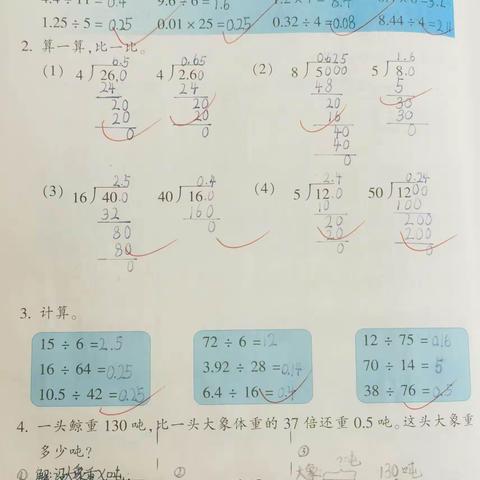 4.4 ÷ 11 = 0.4 9.6 ÷ 6 = 1.6
1.25 ÷ 5 = 0.25 0.01 × 25 = 0.25 0.32 ÷ 4 = 0.08 8.44 ÷ 4 = 2.4
2. 算一算,比一比。
(1) 0.5 0.65 (2) 0625 1.6
4 26.0 4 2.60 8 5000 5 8.0
24 24 48 5
20 20 20 30
20 20 16 30
0 0 40 0
40
0
(3) 2.5 0.4 (4) 2.4 0.24
16 40.0 40 16.0 5 12.0 50 1200
32 160 10 100
80 0 20 200
80 20 200
0 0 0
3. 计算。
15 ÷ 6 = 2.5 72 ÷ 6 = 12 12 ÷ 75 = 0.16
16 ÷ 64 = 0.25 3.92 ÷ 28 = 0.14 70 ÷ 14 = 5
10.5 ÷ 42 = 0.25 6.4 ÷ 16 = 0.4 38 ÷ 76 = 0.5
4. 一头鲸重 130 吨,比一头大象体重的 37 倍还重 0.5 吨。这头大象重
多少吨?
① 解:设大象重X吨 ② ③ 大象 ?吨 130吨